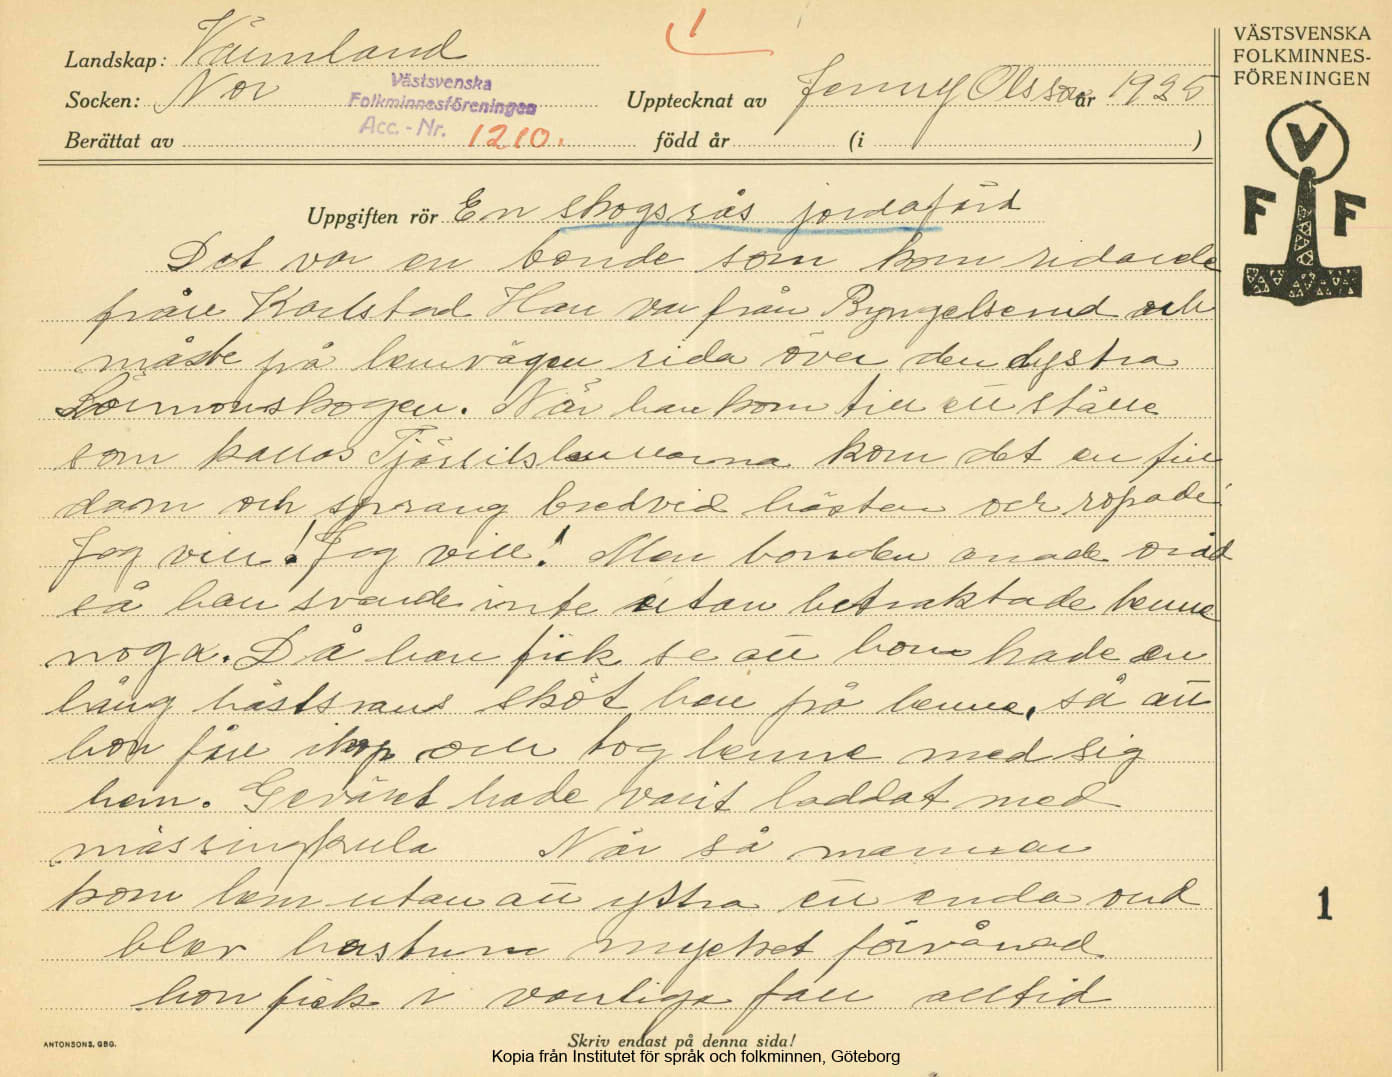 1
Landskap: Värmland
Socken: Nor
Västsvenska
Folkminnesföreningen
Acc.-Nr. 1210.
Upptecknat av Jenny Olsson år 1925
Berättat av född år (i )
VÄSTSVENSKA
FOLKMINNES-
FÖRENINGEN
V
F F
Uppgiften rör En skogsrås jordafärd
Det var en bonde som kom ridande
från Karlstad Han var från Ryngelserud och
måste på hemvägen rida över den dystra
Lörmonskogen. När han kom till ett ställe
som kallas kom det en fin
dam och sprang bredvid hästen och ropade:
Jag vill! Jag vill! Men bonden anade oråd
så han svarde inte utan betraktade henne
noga. Då han fick se att hon hade en
lång hästsvans sköt han på henne, så att
hon föll ihop och tog henne med sig
hem. Geväret hade varit laddat med
mässingkula När så mannen
kom hem utan att yttra ett enda ord
blev hustrun mycket förvånad
hon fick i vanliga fall alltid
1
ANTONSONS, GBG.
Skriv endast på denna sida!
Kopia från Institutet för språk och folkminnen, Göteborg